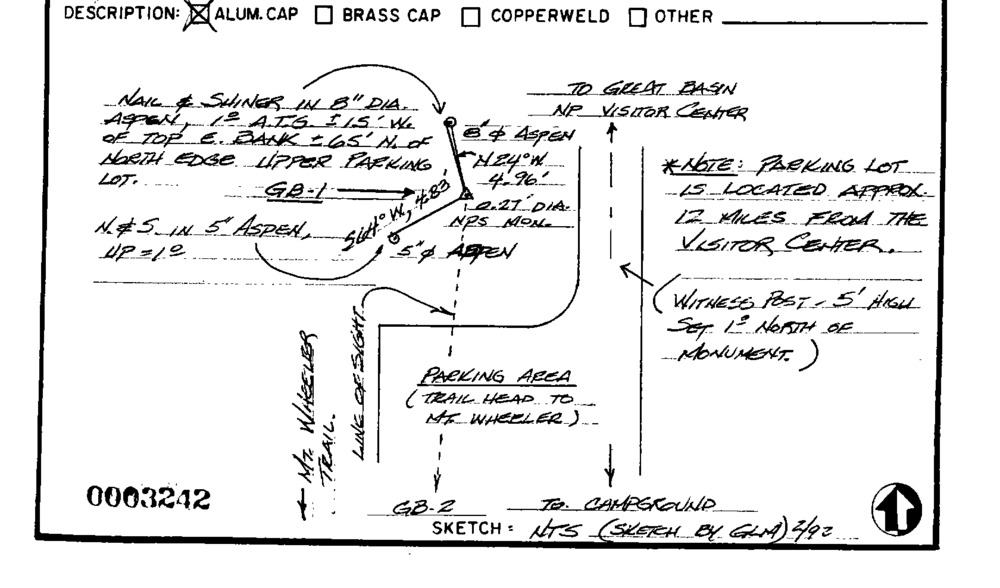 DESCRIPTION: ☒ ALUM. CAP ☐ BRASS CAP ☐ COPPERWELD ☐ OTHER
NAIL & SHINER IN 8" DIA.
ASPEN, 1º A.T.G. ±1.5' W.
OF TOP E. BANK ±65' N. OF
NORTH EDGE UPPER PARKING
LOT.
GB-1
N. & S. IN 5" ASPEN,
UP = 1º
8" ⌀ ASPEN
N24°W
4.96'
0.27' DIA.
NPS MON.
S64°W, 4.83'
5" ⌀ ASPEN
TO GREAT BASIN
NP VISITOR CENTER
*NOTE: PARKING LOT
IS LOCATED APPROX.
12 MILES FROM THE
VISITOR CENTER.
(WITNESS POST - 5' HIGH
SET 1º NORTH OF
MONUMENT.)
← MT. WHEELER
TRAIL.
LINE OF SIGHT
PARKING AREA
(TRAIL HEAD TO
MT. WHEELER)
0003242
GB-2
TO CAMPGROUND
SKETCH: NTS (SKETCH BY GLM) 2/92